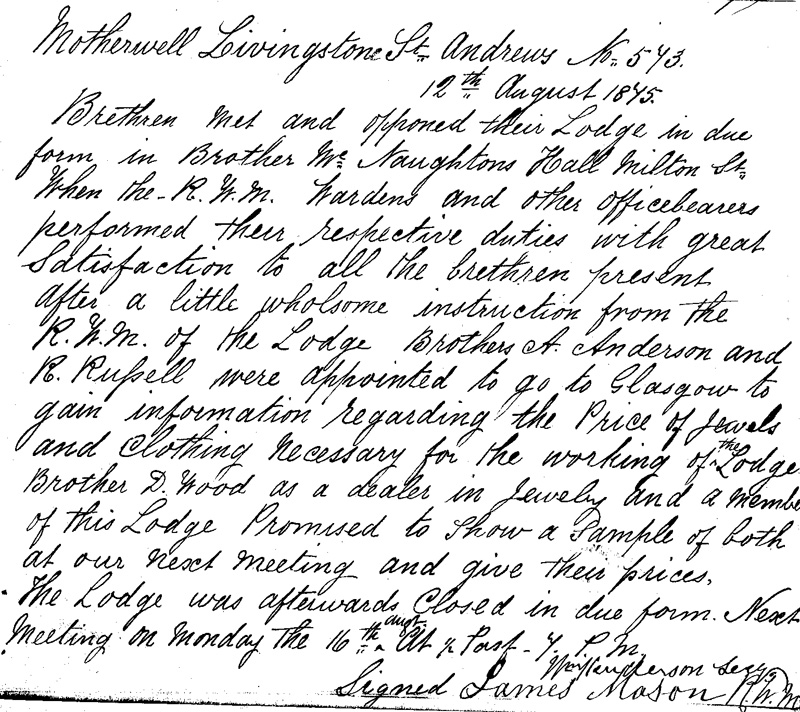 Motherwell Livingstone St. Andrews No. 573.
12th August 1875.
Brethren met and opponed their Lodge in due
form in Brother Mc Naughtons Hall Milton St.
When the R.W.M. Wardens and other officebearers
performed their respective duties with great
Satisfaction to all the brethren present
After a little wholsome instruction from the
R.W.M. of the Lodge Brothers A. Anderson and
R. Russell were appointed to go to Glasgow to
gain information regarding the Price of Jewels
and Clothing Necessary for the working of the Lodge
Brother D. Wood as a dealer in Jewelry and a membe
of this Lodge Promised to Show a Sample of both
at our Next Meeting and give their prices.
The Lodge was afterwards Closed in due form. Next
Meeting on Monday the 16th augt. At ½ Past - 7. P.M.
Secy
Signed James Mason R.W.M